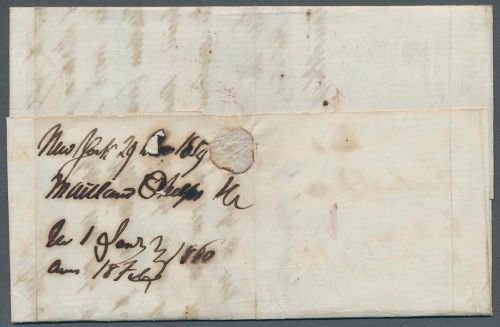 New York 29 1859
Maitland Phelps &c
1 Jany 1860
18 Feb